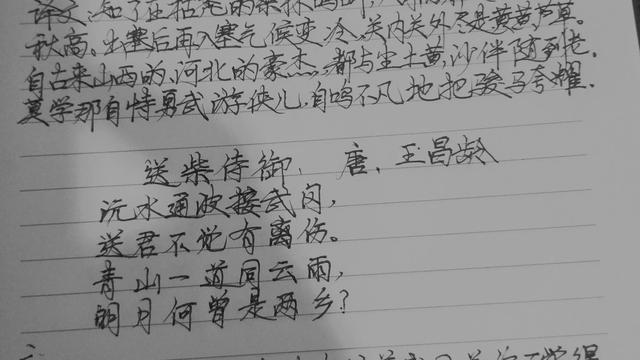 译文,知了在枯秃的桑林鸣叫,
秋高。出塞后再入塞气候变冷,关内关外尽是黄黄芦草。
自古来山西的,河北的豪杰,都与尘土黄沙伴随到老。
莫学那自恃勇武游侠儿,自鸣不凡地把骏马夸耀.
送柴侍御、唐、王昌龄
沅水通波接武冈,
送君不觉有离伤。
青山一道同云雨,
明月何曾是两乡?